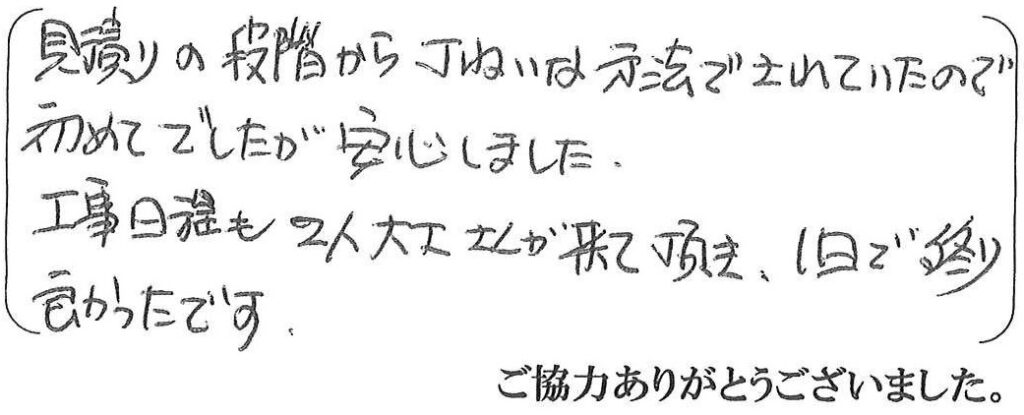 見積りの段階から丁ねいな方法でされていたので
初めてでしたが安心しました.
工事日程も2人大工さんが来て頂き、1日で終り
良かったです.
ご協力ありがとうございました。